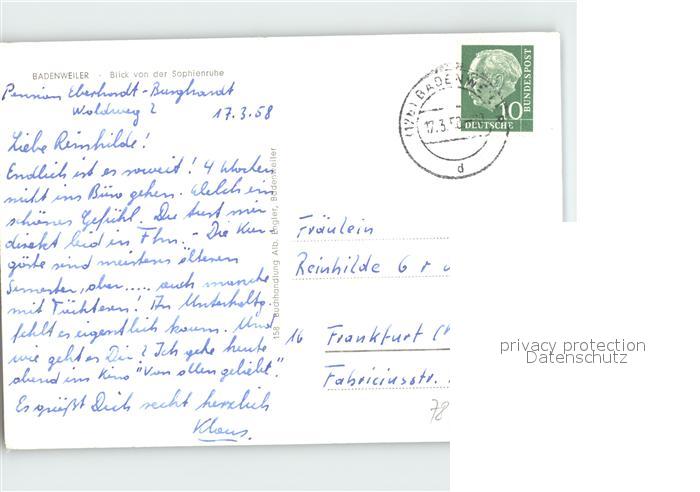 BADENWEILER - Blick von der Sophienruhe
Pension Eberhardt-Burghardt
Waldweg 2 17.3.58
Liebe Reinhilde!
Endlich ist es soweit! 4 Wochen
nicht ins Büro gehen. Welch ein
schönes Gefühl. Du tust mir
direkt leid in Ffm. - Die Kur-
gäste sind meistens älteren
Semester, aber..... auch manche
mit Töchtern! An Unterhaltg.
fehlt es eigentlich kaum. Und
wie geht es Dir? Ich gehe heute
abend ins Kino "Von allen geliebt".
Es grüßt Dich recht herzlich
Klaus.
158 Buchhandlung Alb. Engler, Badenweiler
BADENWE
17.3.58
d
10
DEUTSCHE
BUNDESPOST
Fräulein
Reinhilde Gru
16 Frankfurt (
Fabriciusstr.
78
privacy protection
Datenschutz